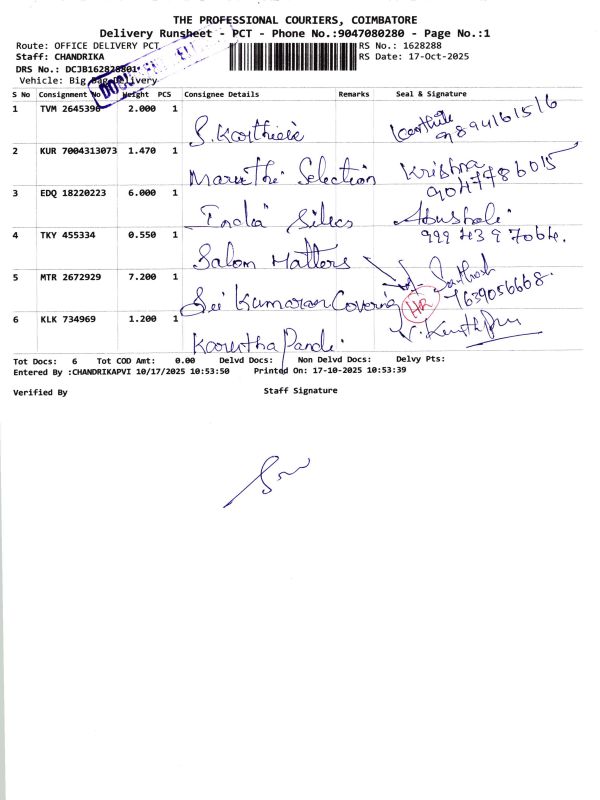 THE PROFESSIONAL COURIERS, COIMBATORE
Delivery Runsheet - PCT - Phone No.:9047080280 - Page No.:1
Route: OFFICE DELIVERY PCT RS No.: 1628288
Staff: CHANDRIKA RS Date: 17-Oct-2025
DRS No.: 
Vehicle: Big Bag Delivery
S No Consignment No Weight PCS Consignee Details Remarks Seal & Signature
1 TVM 2645390 2.000 1 S. Karthick Karthik
9894161516
2 KUR 7004313073 1.470 1 Maruthi Selection Krishna
9047786015
3 EDQ 18220223 6.000 1 India Silks
4 TKY 455334 0.550 1 Salom Matters 999 43 9 7064.
5 MTR 2672929 7.200 1 Sri Kumaran Covering Santhosh
7639056668.
HR
6 KLK 734969 1.200 1 Pandi.
Tot Docs: 6 Tot COD Amt: 0.00 Delvd Docs: Non Delvd Docs: Delvy Pts:
Entered By :CHANDRIKAPVI 10/17/2025 10:53:50 Printed On: 17-10-2025 10:53:39
Verified By Staff Signature